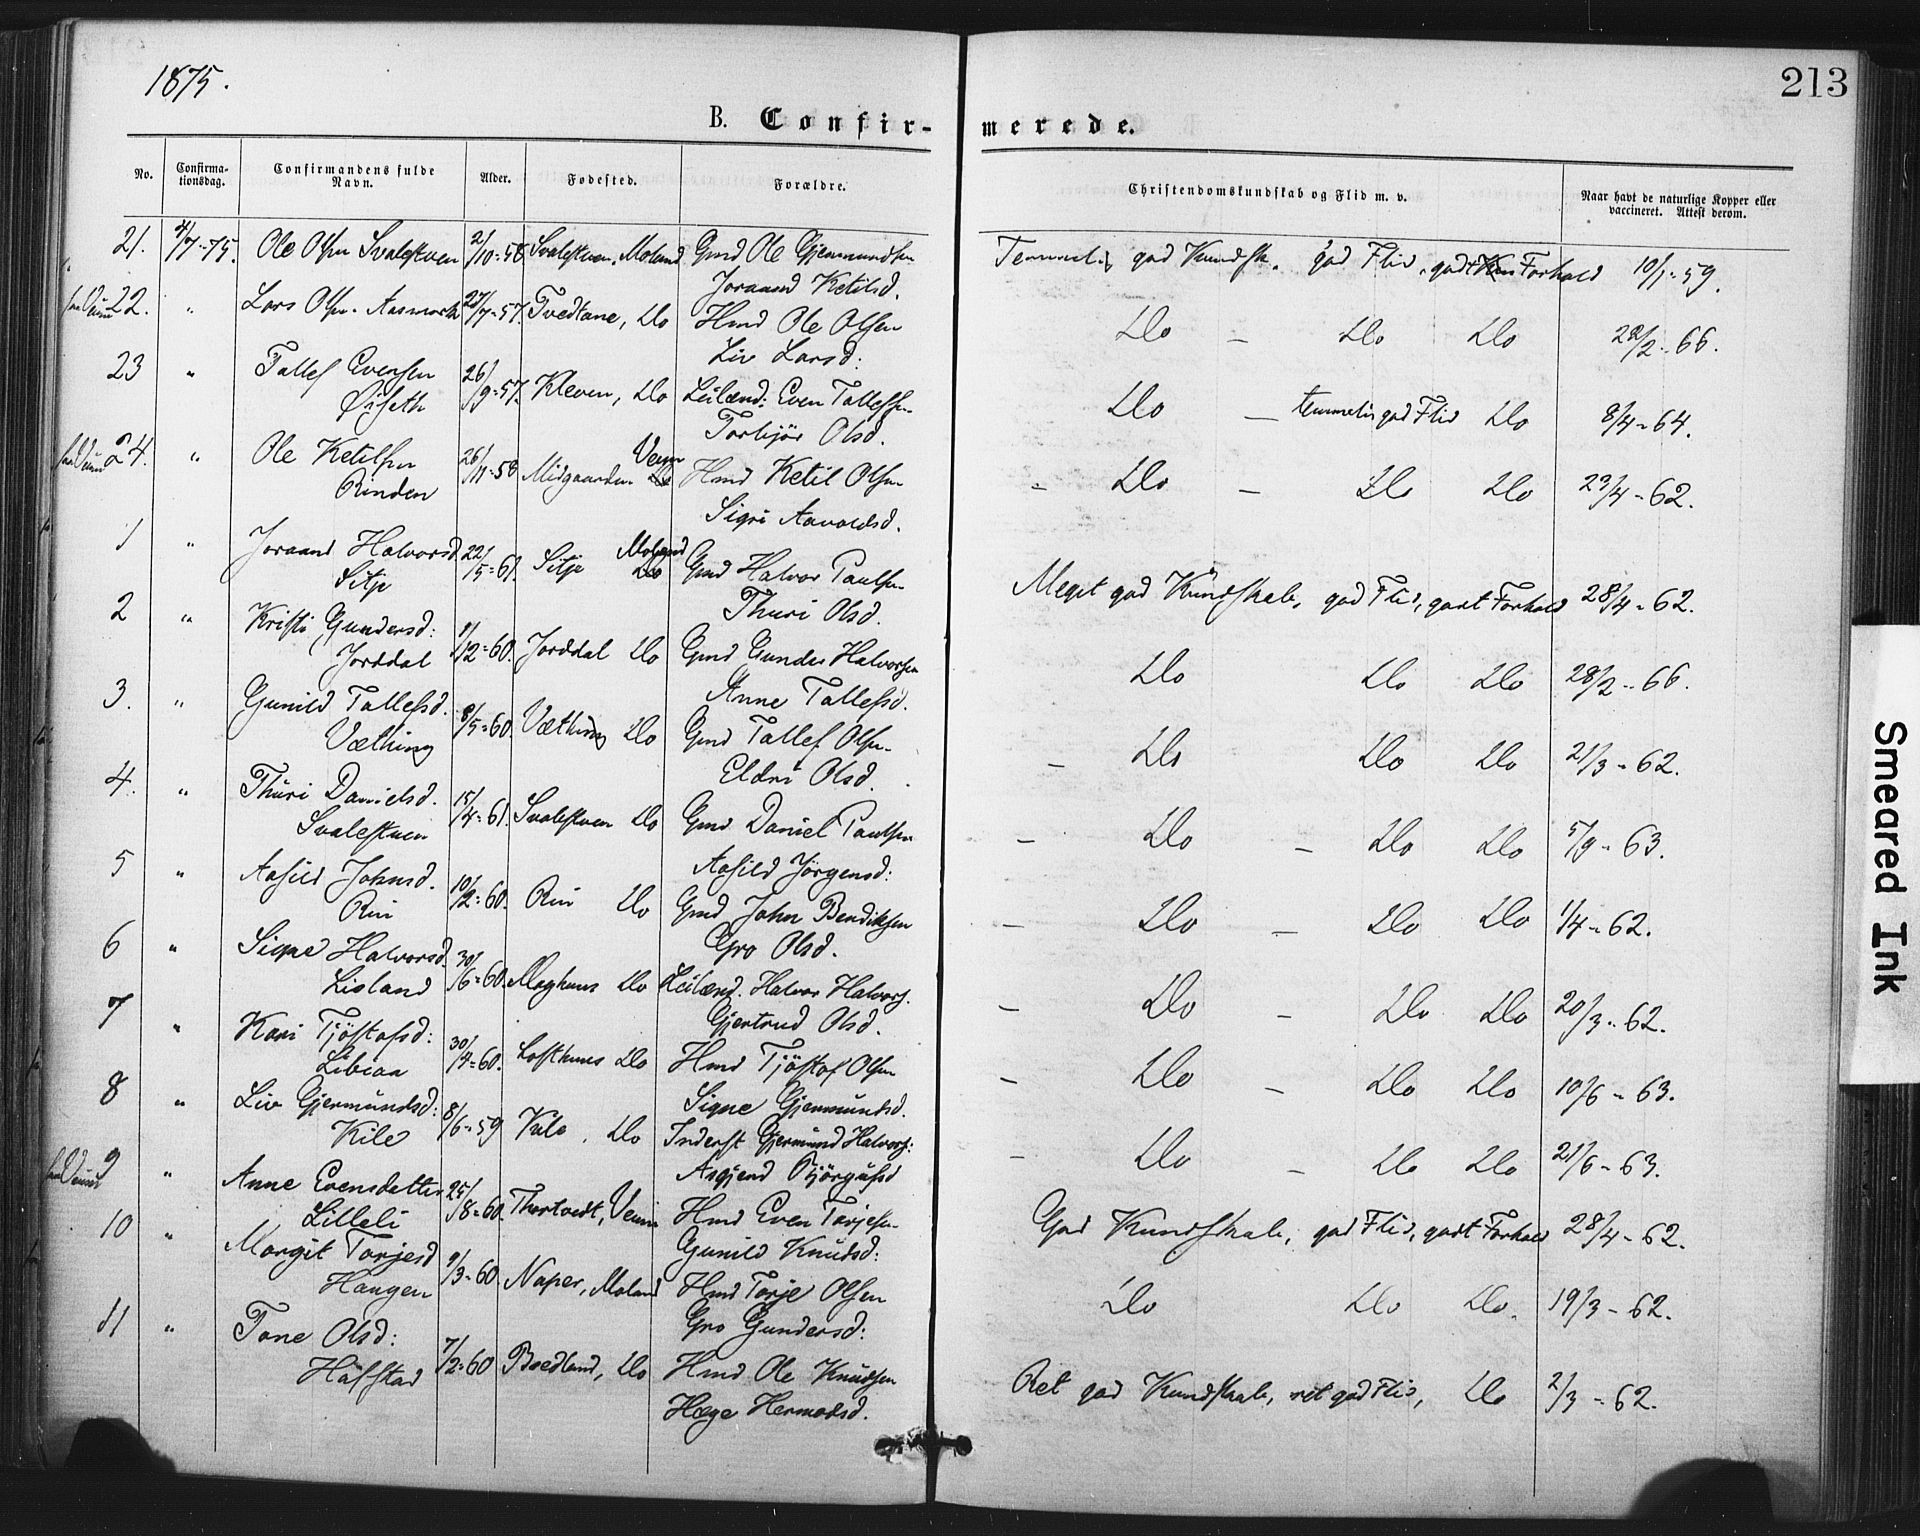 1875.
213
B. Confir-
merede.
No. Confirma-tionsdag. Confirmandens fulde Navn. Alder. Fødested. Forældre. Christendomskundskab og Flid m. v. Naar havt de naturlige Kopper eller vaccineret. Attest derom.
21. 4/7-75. Ole Olsen Svalestuen 2/10-58 Svalestuen, Moland Gmd Ole Gjermundsen god Kundsk. god Flid, godt Forhold 10/1-59.
Joraand Ketilsd.
22. " Lars Olsen 27/7-57. Tvedtane, Do Hmd Ole Olsen Do - Do Do 22/2-66.
Liv Larsd:
23 " Tallef Evensen 26/9-57. Kleven, Do Leilænd: Even Tallefsen Do - temmelig god Flid Do 8/4-64.
Øiseth Torbjør Olsd.
24. " Ole Ketilsen 26/11-58 Midgaarden Veum Hmd Ketil Olsen " Do - Do Do 23/4-62.
Rinden Sigri Aavoldsd.
1 " Joraand Halvorsd 22/5-61. Sitje Moland Gmd Halvor Paulsen Meget god Kundskab, god Flid, godt Forhold 28/4-62.
Sitje Thuri Olsd.
2 " Kristi Gundersd: 1/12-60. Jorddal Do Gmd Gunder Halvorsen Do Do Do 28/2-66.
Jorddal Anne Tallefsd.
3. " Gunild Tallefsd. 8/5-60. Væthing Do Gmd Tallef Olsen - Do Do Do 21/3-62.
Væthing Eldri Olsd.
4. " Thuri Danielsd. 15/4-61. Svalestuen Do Gmd Daniel Paulsen - Do - Do Do 5/9-63.
Svalestuen Aasild Jörgensd:
5 " Aasild Johnsd. 10/2-60. Rui Do Gmd John Bendiksen - Do - Do Do 1/4-62.
Rui Gro Olsd.
6 " Signe Halvorsd. 30/6-60. Moghuus Do Leilænd. Halvor Halvors. - Do - Do Do 20/3-62.
Lisland Gjertrud Olsd.
7 " Kari Tjöstofsd: 30/4-60. Lofthuus Do Hmd Tjöstof Olsen - Do - Do Do 10/6-63.
Libiaa Signe Gjermundsd.
8 " Liv Gjermundsd: 8/6-59 Do Inderst Gjermund Halvors: - Do - Do Do 21/6-63.
Kile
9 " Anne Evensdatter 25/8-60. Veum Hmd Even Torjesen God Kundskab, god Flid, godt Forhold 28/4-62.
Lilleli Gunild Knudsd:
10 " Margit Torjesd 9/3-60 Naper, Moland Hmd Torje Olsen Do Do Do. 19/3-62.
Haugen Gro Gundersd:
11 " Tone Olsd: 7/2-60 Do Hmd Ole Knudsen Ret god Kundskab, ret god Flid, Do 2/3-62.
Hafstad Hæge Hermodsd.
Smeared Ink